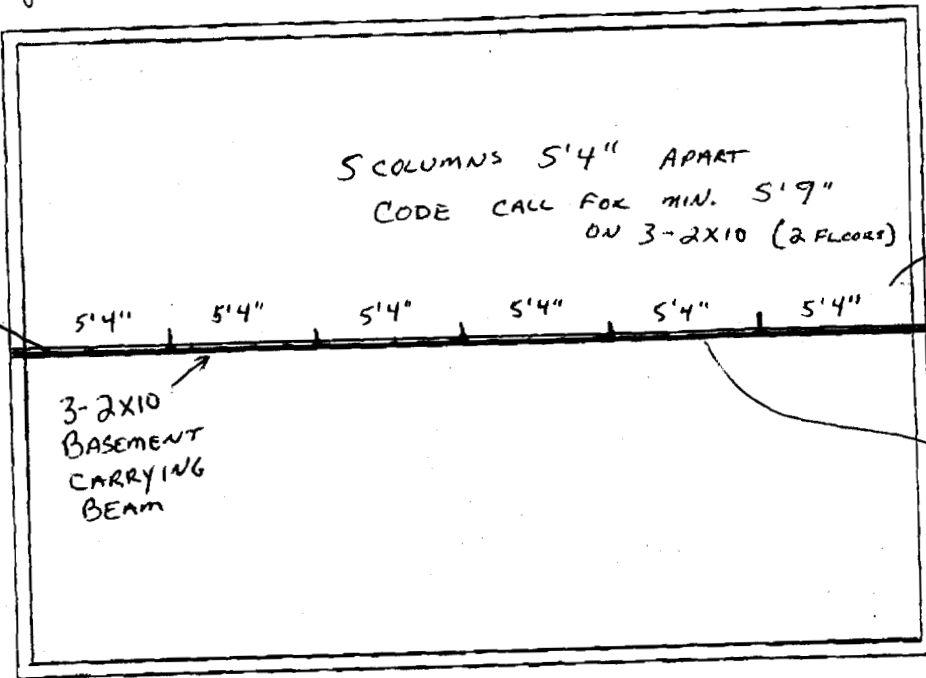 5 COLUMNS 5'4" APART
CODE CALL FOR MIN. 5'9"
ON 3-2X10 (2 FLOORS)
5'4" 5'4" 5'4" 5'4" 5'4" 5'4"
3-2X10
BASEMENT
CARRYING
BEAM